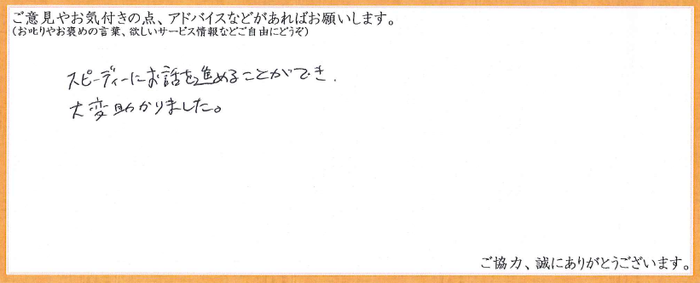 ご意見やお気付きの点、アドバイスなどがあればお願いします。
(お叱りやお褒めの言葉、欲しいサービス情報などご自由にどうぞ)
スピーディーにお話を進めることができ、
大変助かりました。
ご協力、誠にありがとうございます。